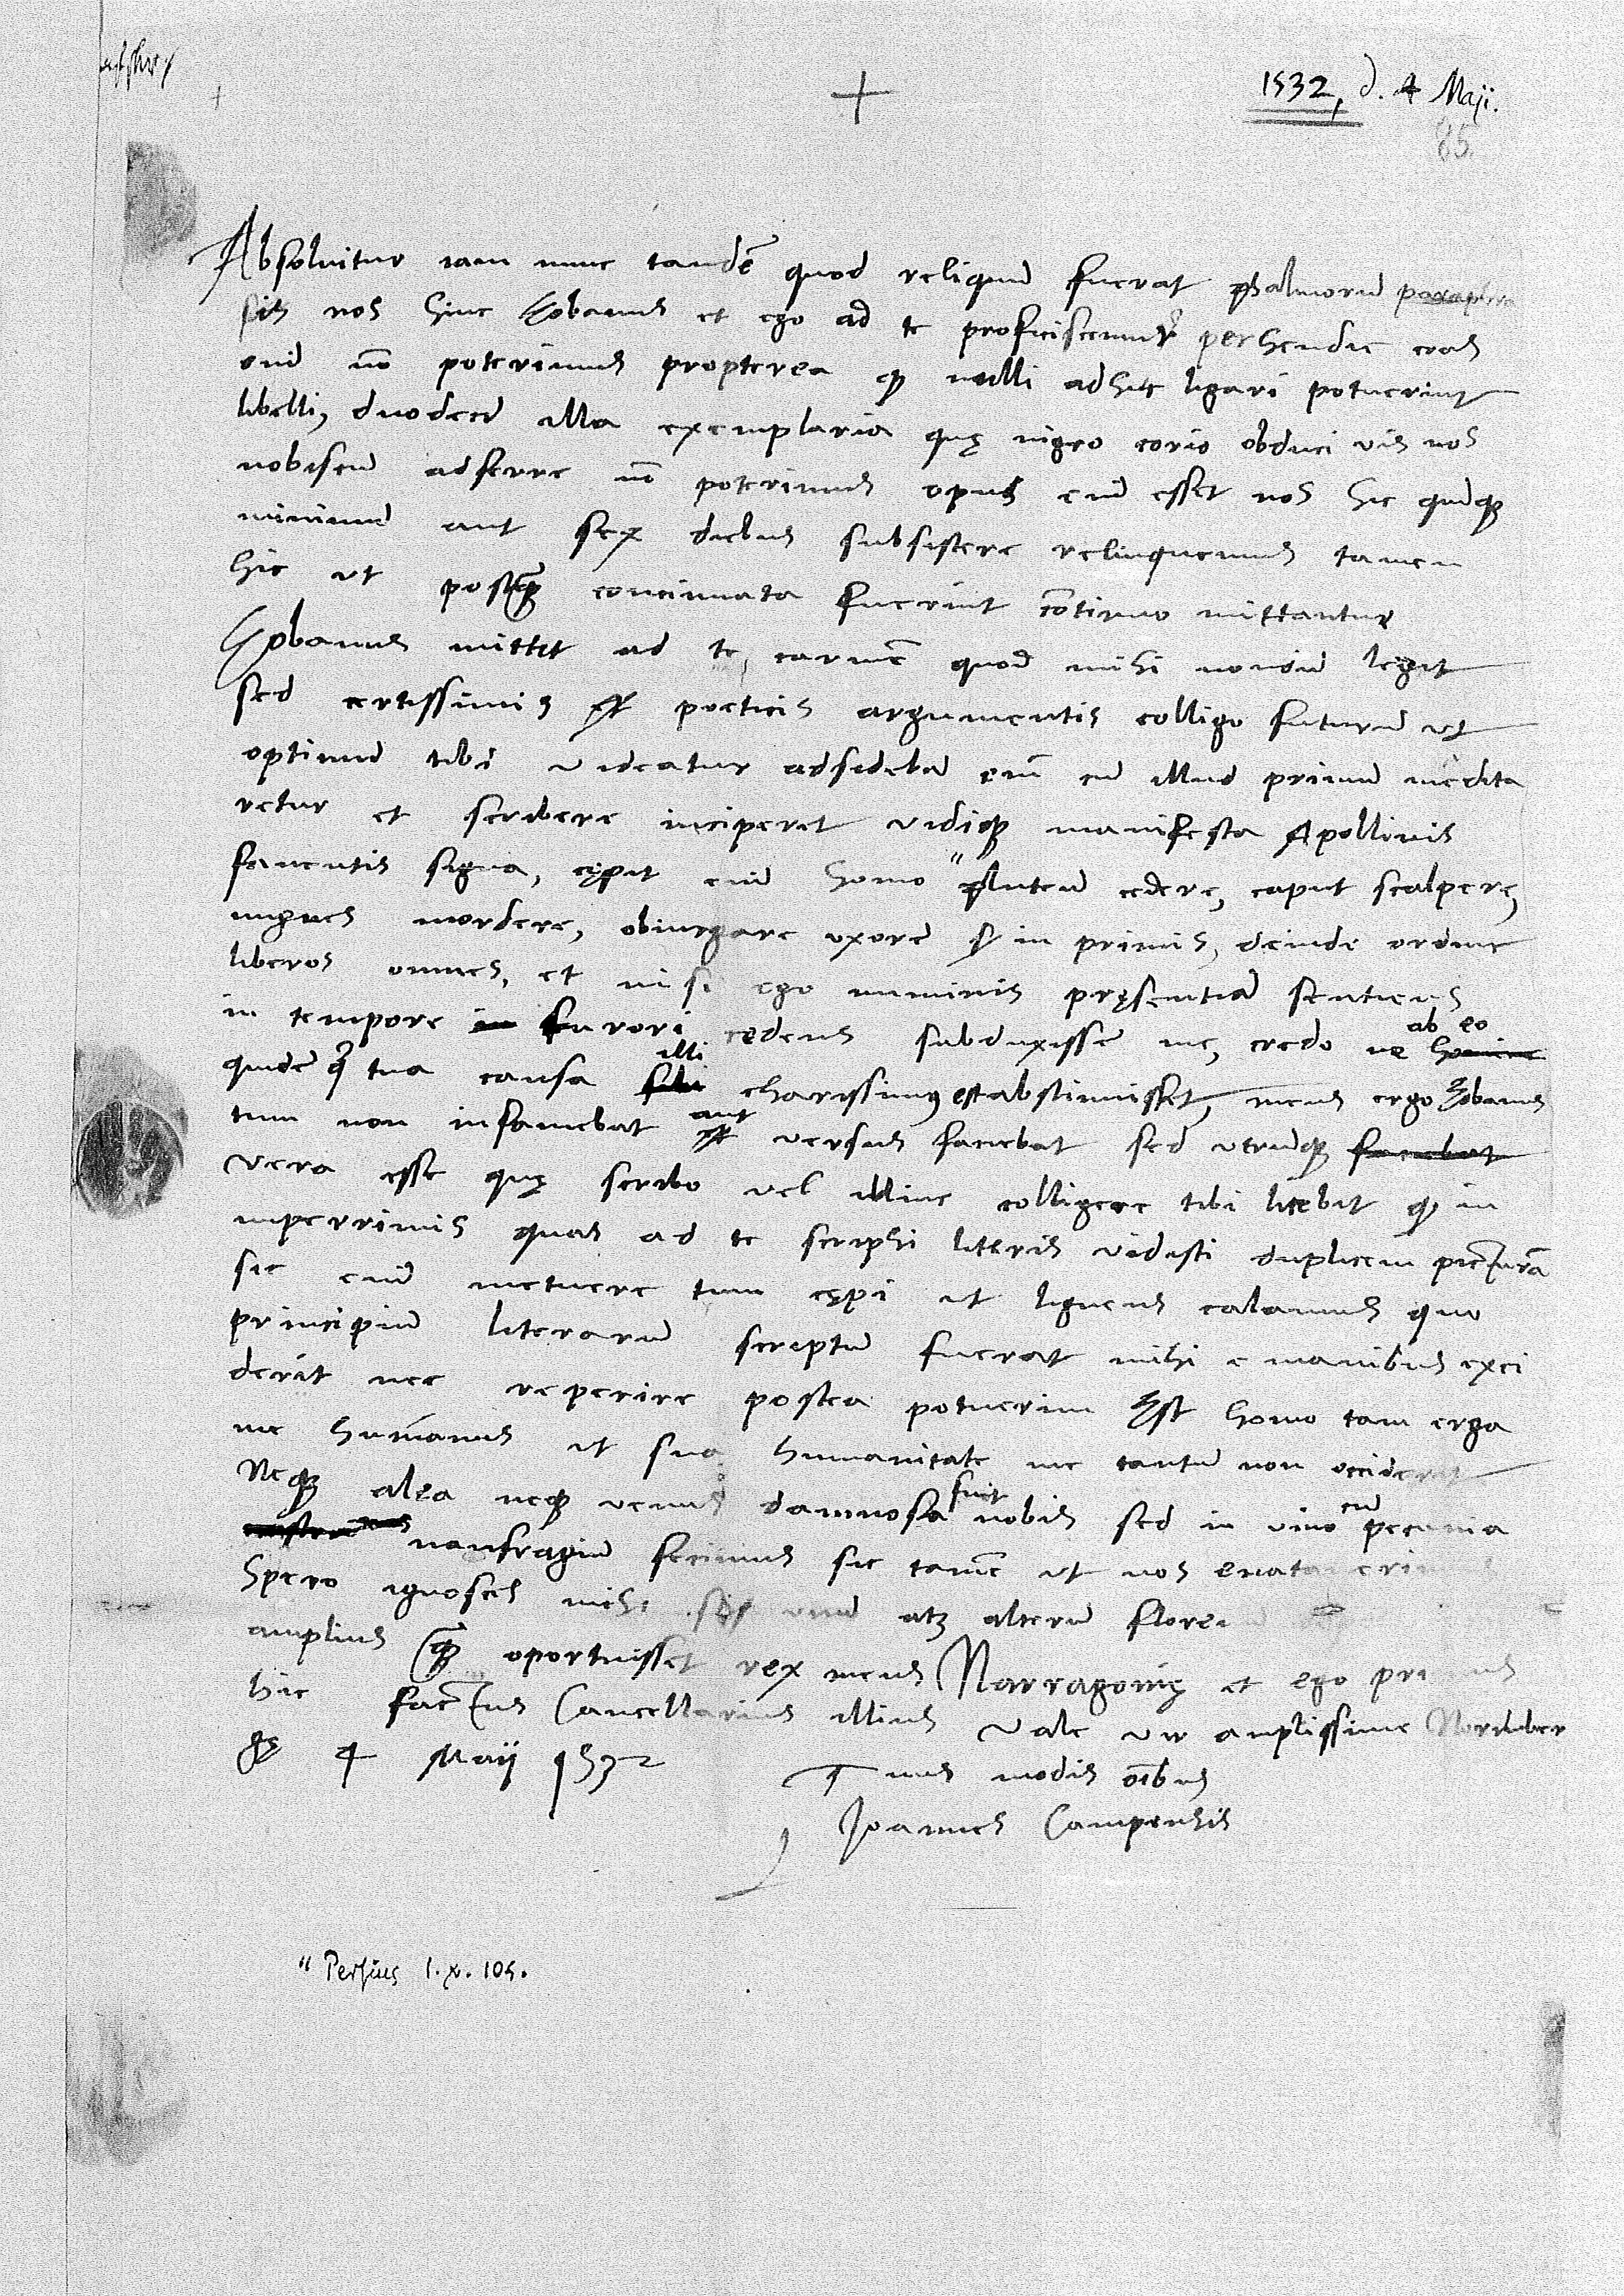 1532, d. 4 Maji.
85
Absoluitur iam nunc tandē quod reliquū fuerat psalmorū paraphra
sis nos hinc Eobanus et ego ad te proficiscemur perhendie cras
enī nō poterimus propterea qꝫ nulli adhuc ligari potuerint
libelli, duodecī illa exemplaria quę nigro corio obduci vis nos
nobiscū adferre nō poterimus opus enī esset nos hic quīqꝫ
minimū aut sex diebus subsistere relinquemus tamen
hic vt postqꝫ concinnata fuerint cōtinuo mittantur
Eobanus mittit ad te carmē quod mihi nondū legit
sed certissimis et poeticis argumentis colligo futurū vt
optimū tibi videatur adsidebā enī cū illud primū medita
retur et scribere inciperet vidiqꝫ manifesta Apollinis
fauentis signa, cępit enī homo " pluteū cedere, caput scalpere,
ungues mordere, obiurgare vxorē in primis, deinde ordine
liberos omnes, et nisi ego numinis pręsentiā sentiens
in tempore furori cedens subduxissē me, credo ne ab eo
quidē qͥ tua causa illi charissimus est abstinuisset, meus ergo Eobanus
tum non insaniebat aut versus faciebat sed vtrūqꝫ faciebat
Vera esse quę scribo vel illinc colligere tibi licebit qꝫ in
nuperrimis quas ad te scripsi literis vidisti duplicem picturā
sic enī metuere tum cępi ut ligneus calamus quo
principiū literarū scriptū fuerat mihi e manibus exci
derit nec reperire postea potuerim Est homo tam erga
me humanus ut sua humanitate me tantū non occiderit
Neqꝫ alea neqꝫ venus damnosa fuit nobis sed in vino cū pecunia
naufragiū fecimus sic tamē ut nos enatauerimus
Spero ignosces mihi si unū atqꝫ alterū florenū
amplius qꝫ oportuisset rex meus Narragonię et ego primus
hic factus Cancellarius illius Vale vir amplissime Norimber
gę 4 Maij 1532
Tuus modis oībus
Joannes Campensis
" Persius 1. v. 105.